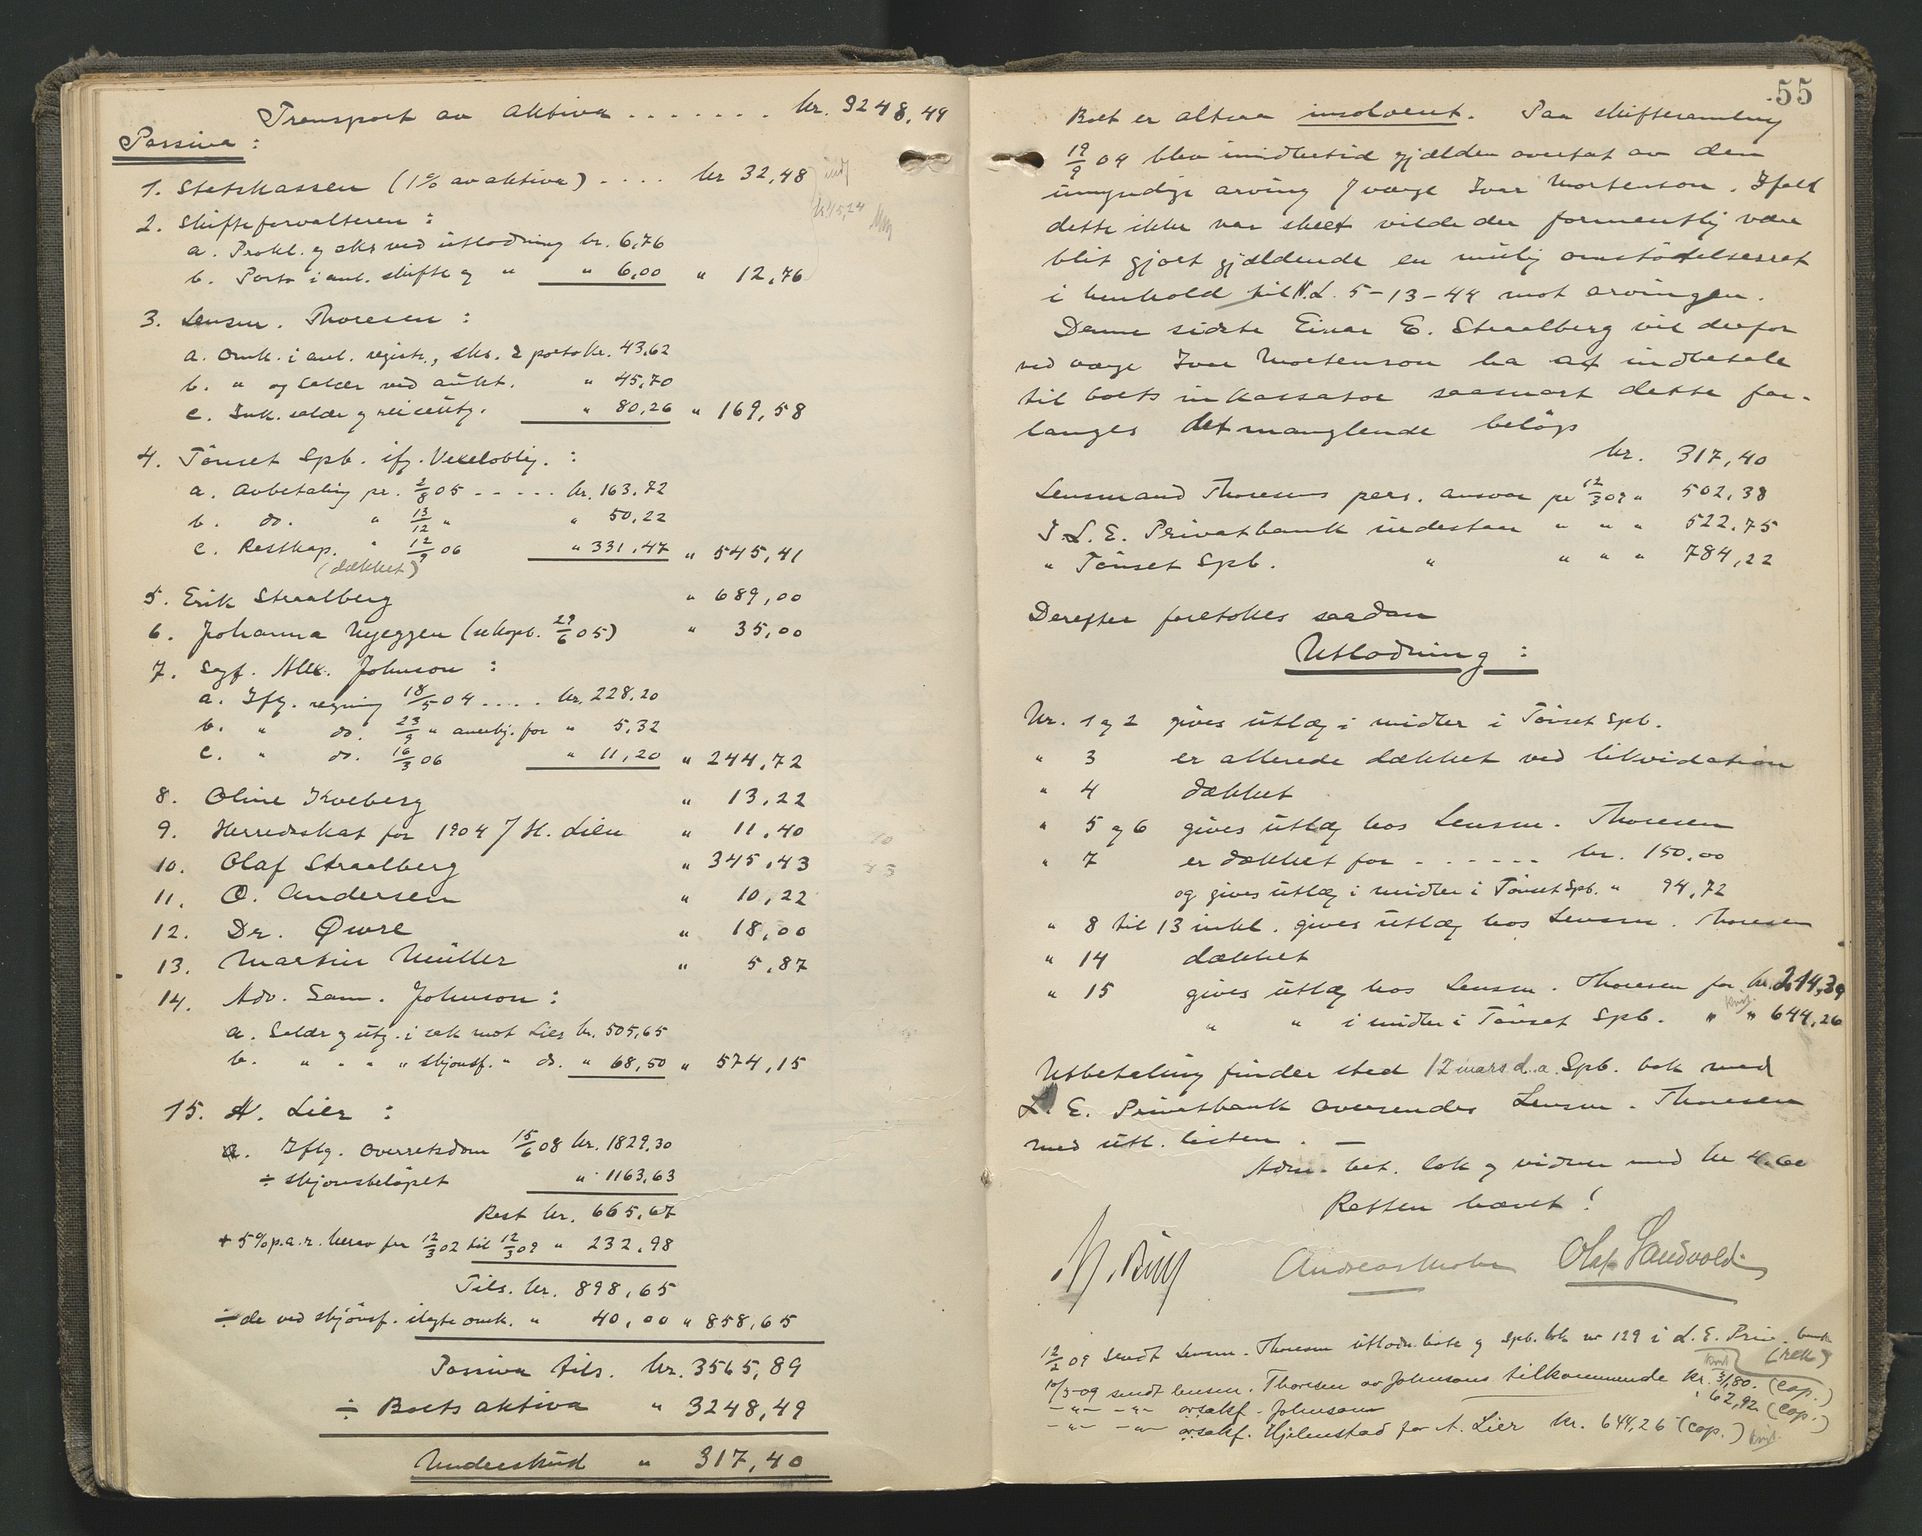 Transport av aktiva . . . . . . . kr. 3248,49
Passiva:
1. Statskassen (1% av aktiva) . . . . kr 32,48
2. Skifteforvalteren:
a. Prokl. og eks ved utlodning kr. 6,76
b. Porto i anl. skifte og " " 6,00 " 12,76
3. Lensm. Thoresen:
a. Omk. i anl. registr., eks. & porto kr. 43,62
b. " og salær ved aukt. " 45,70
c. Ink. salær og reiseutg. " 80,26 " 169,58
4. Tönset Spb. ifg. Vexeloblig.:
a. Avbetaling pr. 2/8 05 - - . . . kr. 163,72
b. do. " 13/12 " " 50,22
c. Restkap. " 12/9 06 " 331,47 " 545,41
(dækket)
5. Erik Straalberg " 689,00
6. Johanna Nyeggen (sskopb. 29/6 05) " 35,00
7. Sagf. Alex. Johnson:
a. Ifg. regning 18/5 04 . . . . . kr. 228,20
b. " do. 23/9 " anerkj. for " 5,32
c. " do. 16/3 06 " 11,20 " 244,72
8. Oline Kveberg " 13,22
9. Herredsskat for 1904 / H. Lien " 11,40
10. Olaf Straalberg " 345,43
11. O. Andersen " 10,22
12. Dr. Øwre " 18,00
13. Martin Müller " 5,87
14. Adv. Sam. Johnson:
a. Salær og utg. i sak mot Lier kr. 505,65
b. " " " " skjønsf. " do. " 68,50 " 574,15
15. A. Lier:
a. Iflg. overretsdom 15/6 08 kr. 1829,30
÷ skjønsbelöpet " 1163,63
Rest kr. 665,67
+ 5% p.a. r. herav fra 12/3 02 til 12/3 09 " 232,98
Tils. kr. 898,65
÷ de ved skjönsf. ilagte omk. " 40,00 " 858,65
Passiva tils. kr. 3565,89
÷ Boets aktiva " 3248,49
Underskud " 317,40
55
Boet er altsaa insolvent. Paa skiftesamling
19/9 04 blev imidlertid gjælden overtat av den
umyndige arving / verge Ivar Mortenson. Ifald
dette ikke var skeet vilde der formentlig være
blit gjort gjældende en mulig omstödelsesret
i henhold til N.L. 5-13-44 mot arvingen.
Denne sidste Einar E. Straalberg vil derfor
ved verge Ivar Mortenson ha at indbetale
til boets inkassator saasnart dette for-
langes det manglende belöp
kr. 317,40
Lensmand Thoresens pers. ansvar pr 12/3 09 " 502,38
I L. E. Privatbank indestaar " " " 522,75
" Tönset Spb. " " " " 784,22
Derefter foretokes saadan
Utlodning:
Nr. 1 og 2 gives utlæg i midler i Tönset Spb.
" 3 er allerede dækket ved likvidation
" 4 dækket
" 5 og 6 gives utlæg hos Lensm. Thoresen
" 7 er dækket for - - - - - - kr. 150,00
og gives utlæg i midler i Tönset Spb. " 94,72
" 8 til 13 inkl. gives utlæg hos Lensm. Thoresen
" 14 dækket
" 15 gives utlæg hos Lensm. Thoresen for kr. 214,39
" " i midler i Tönset Spb. " " 644,26
Utbetaling finder sted 12 mars d.a. Spb. bok med
L. E. Privatbank oversendes Lensm. Thoresen
med utl. listen. —
Adm. bet. lok og vidner med kr 4.60
Retten hævet!
Andreas Moen Olaf Sandvold
12/2 09 Sendt Lensm. Thoresen utlodn. liste og Spb. bk nr 129 i L. E. Priv. bank
(rek)
10/3-09 sendt lensm. Thoresen av Johnsons tilkommende kr. 31,80. (cop.)
-"- -"- orsakf. Johnson " 62,92 (cop.)
-"- -"- orsakf. Hjelmstad for A. Lier kr. 644,26 (cop.) kvit.